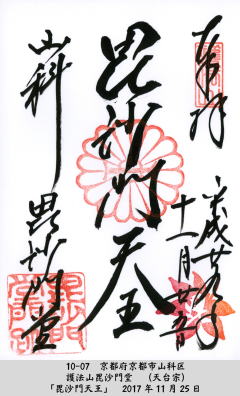 奉拝
平成廿九年
十一月廿五日
毘沙門天王
山科
毘沙門堂
10-07　京都府京都市山科区
護法山毘沙門堂　（天台宗）
「毘沙門天王」　2017年11月25日